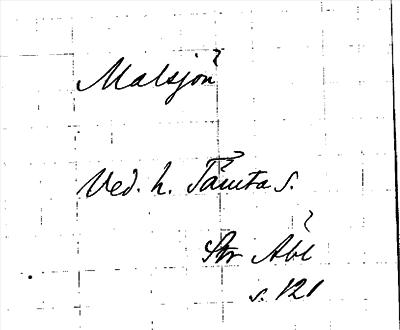 Malsjön
Ved. h. Tämta s.
Str Äbl
s. 121